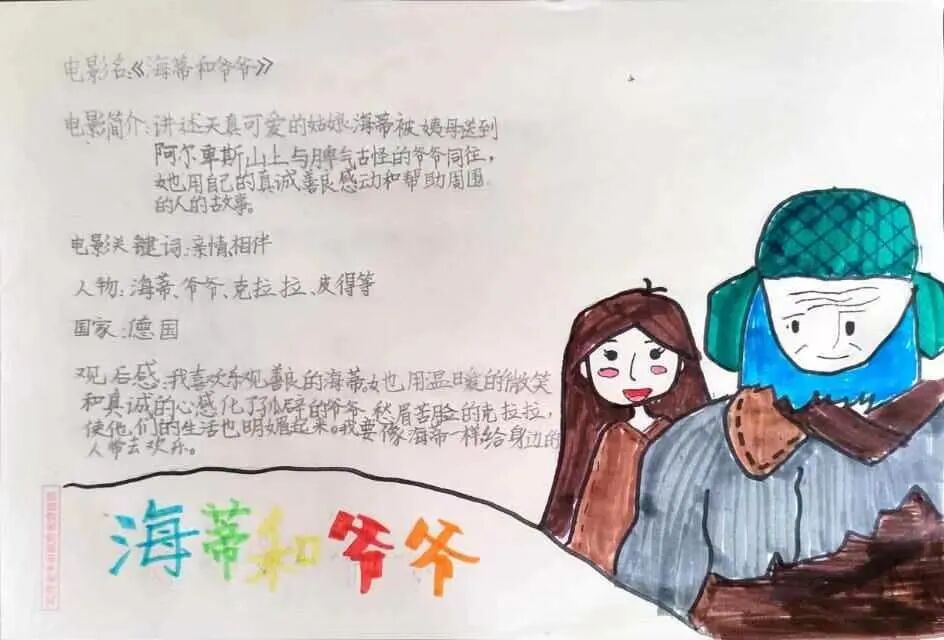 电影名:《海蒂和爷爷》
电影简介:讲述天真可爱的姑娘海蒂被姨母送到
阿尔卑斯山上与脾气古怪的爷爷同住,
她用自己的真诚善良感动和帮助周围
的人的故事。
电影关键词:亲情相伴
人物:海蒂、爷爷、克拉拉、皮得等
国家:德国
观后感:我喜欢乐观善良的海蒂,她用温暖的微笑
和真诚的心感化了孤僻的爷爷、愁眉苦脸的克拉拉,
使他们的生活也明媚起来。我要像海蒂一样,给身边的
人带去欢乐。
海蒂和爷爷